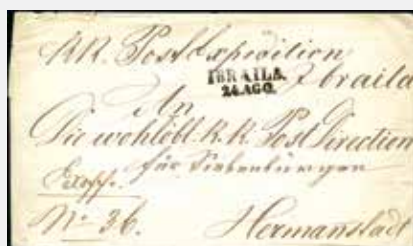 K.K. Post Expedition
IBRAILA. Ibraila
24. AGO.
An
Die wohllöbl. K. K. Post Direction
für Siebenbürgen
No. 36. Hermanstadt